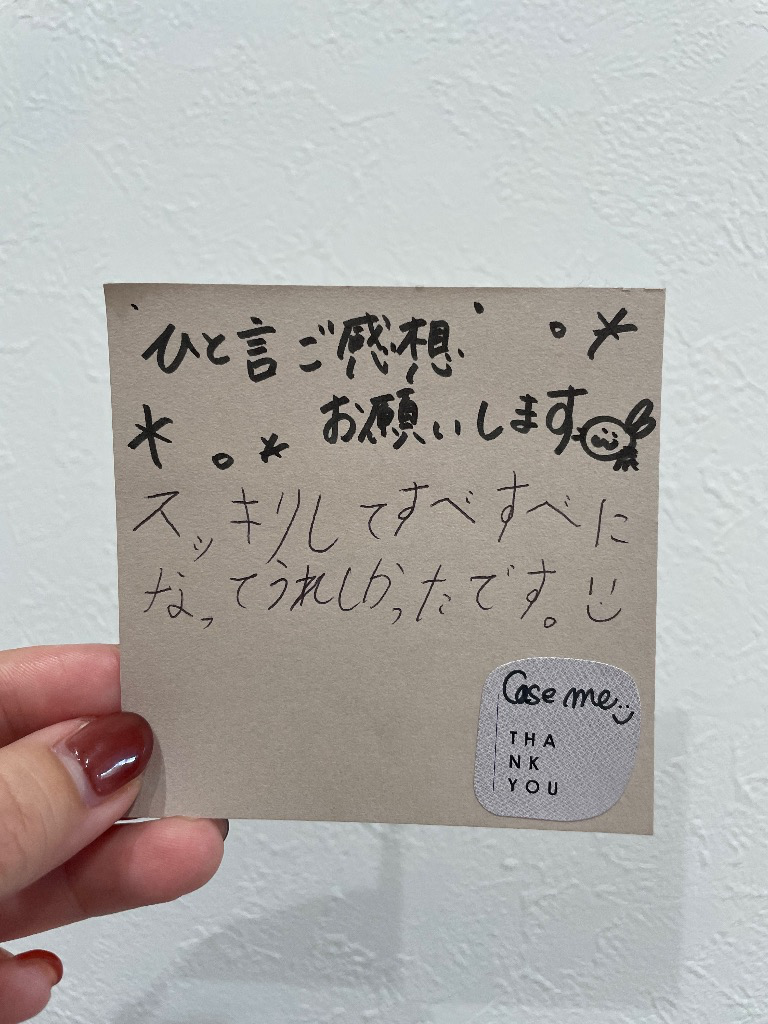 ひと言ご感想
お願いします
スッキリしてすべすべに
なってうれしかったです。
Case me
THA
NK
YOU